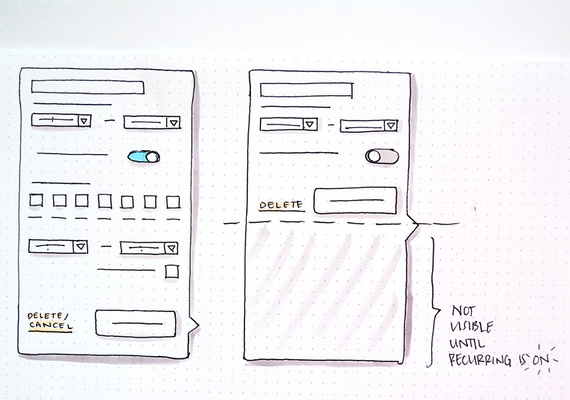 DELETE/
CANCEL
DELETE
NOT
VISIBLE
UNTIL
RECURRING IS ON